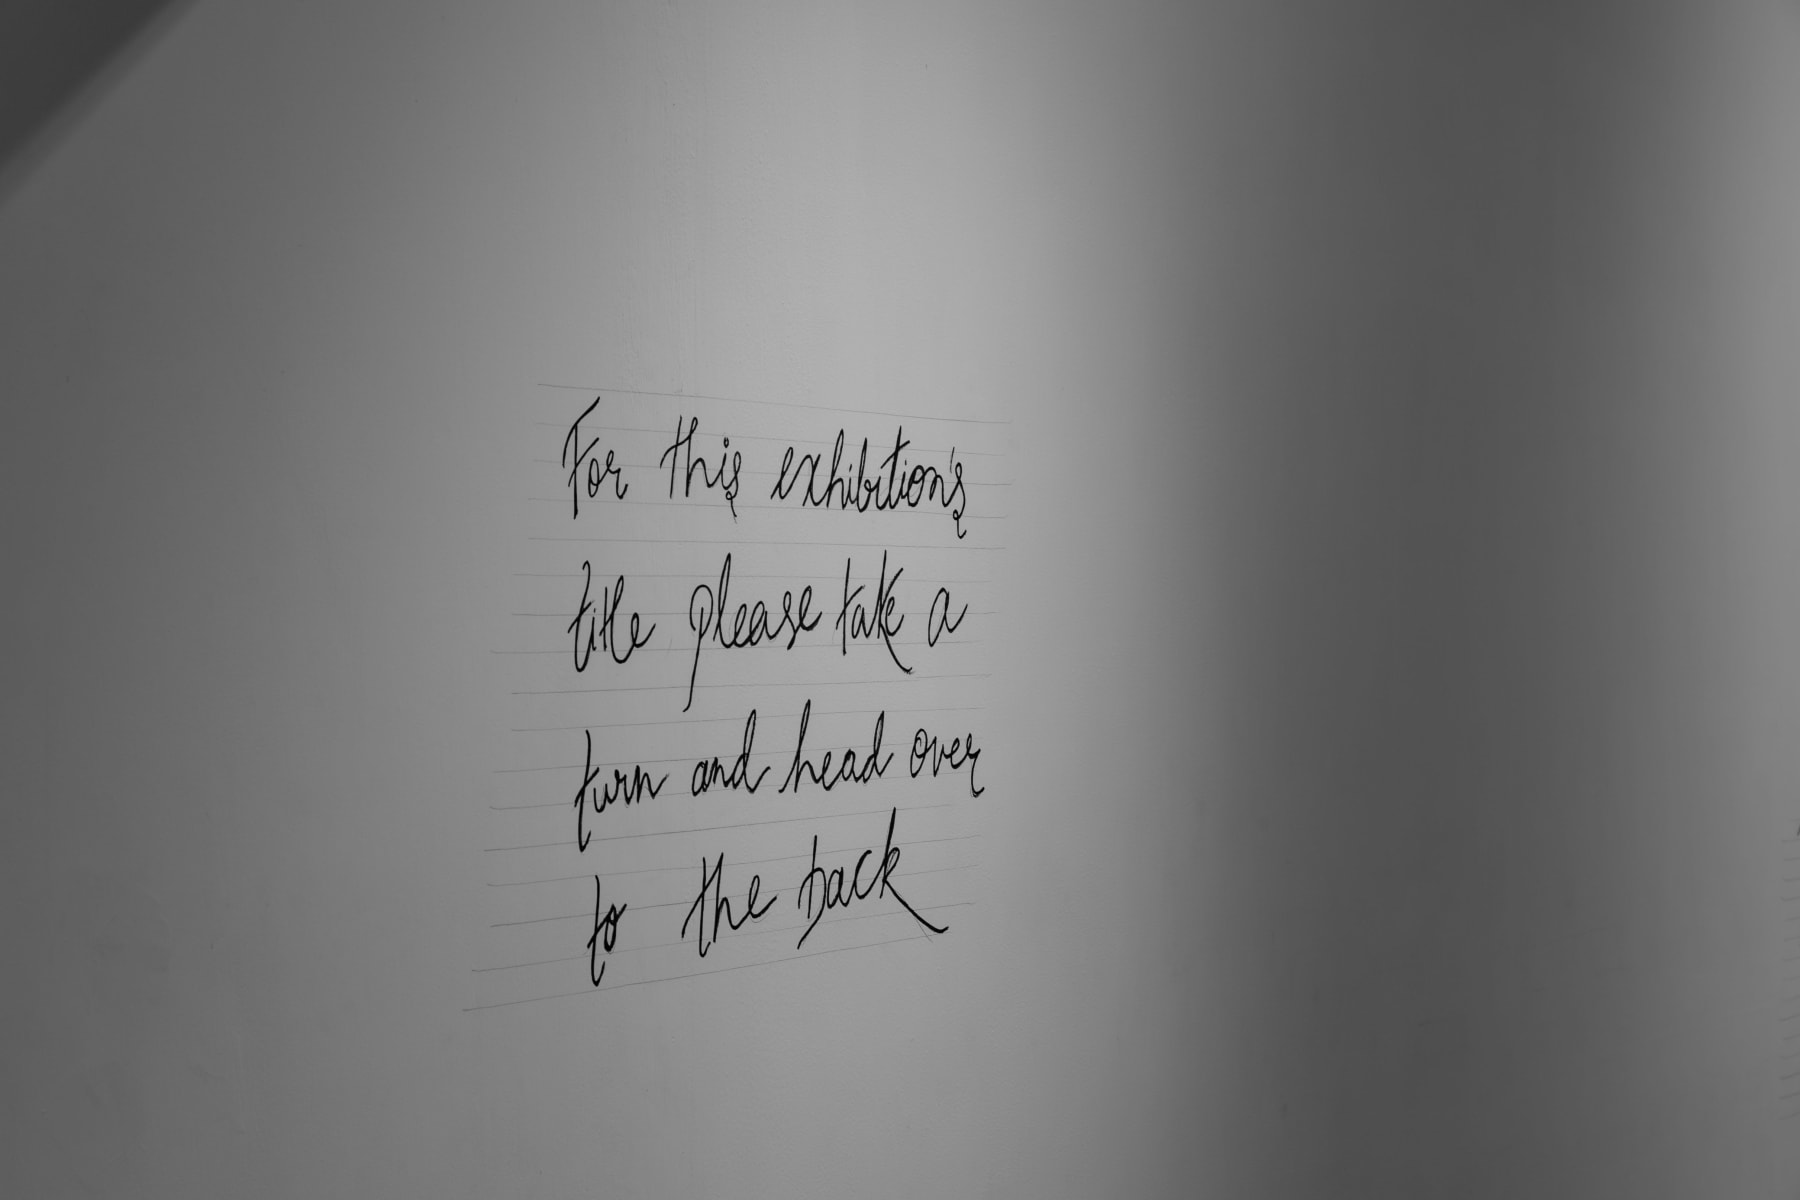 For this exhibition's
title please take a
turn and head over
to the back